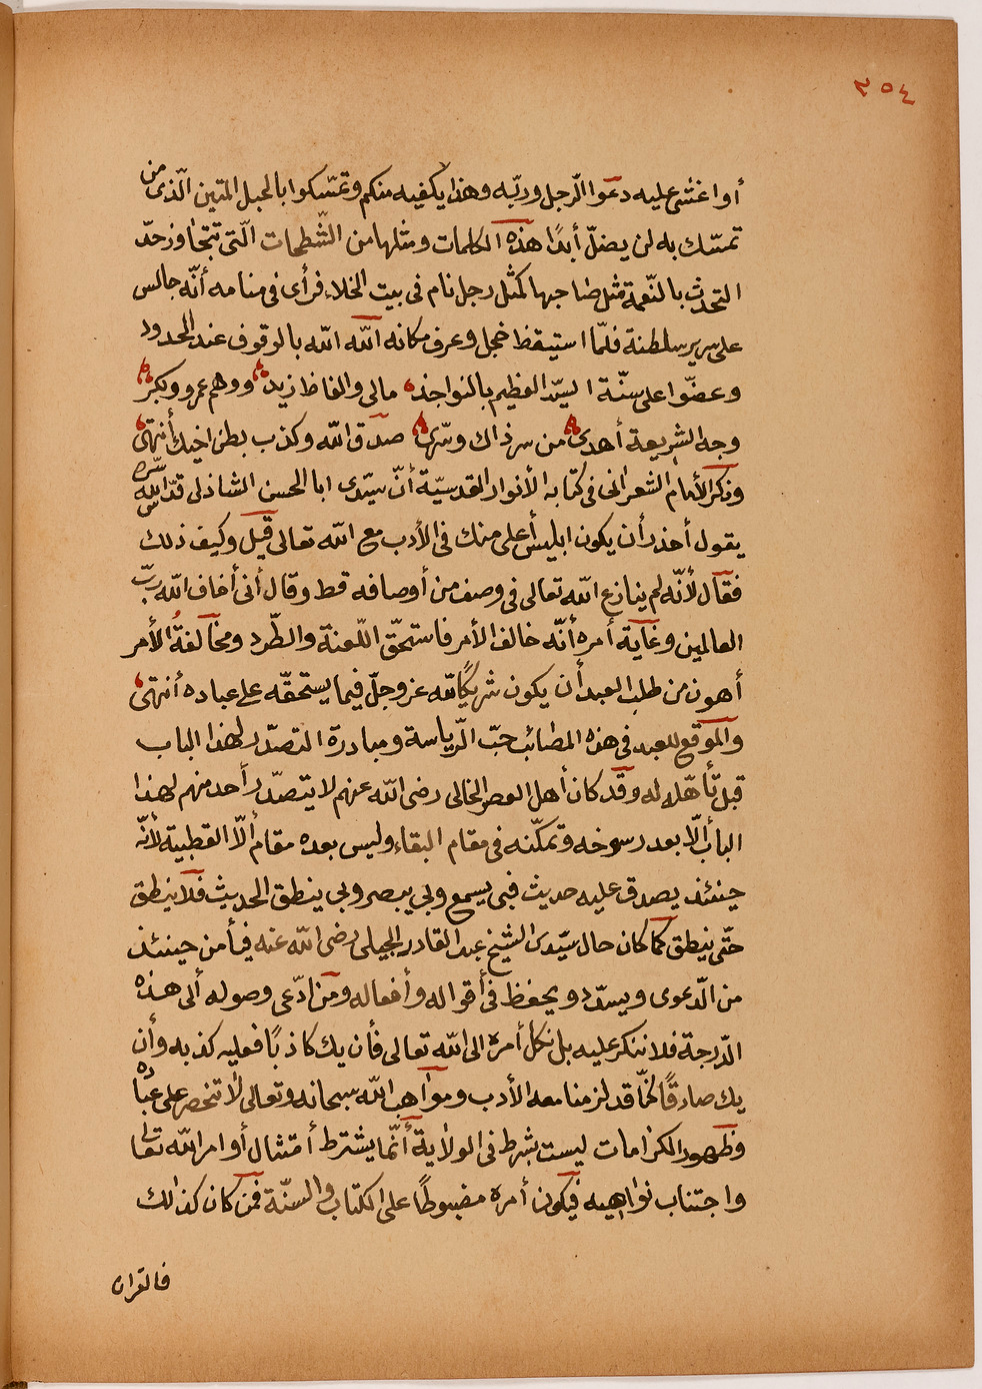 ٣٥٤
أو اغتنى عليه دعوا الرجل وربّه وهذا يكفيه منكم وتمسّكوا بالحبل المتين الّذى من
تمسّك به لن يضلّ أبدًا هذه الكلمات ومثلها من الشّطحات الّتى تتجاوز حدّ
التحدث بالنّعمة مثل صاحبها كمثل رجل نام فى بيت الخلاء فرأى فى منامه أنّه جالس
على سرير سلطنة فلمّا استيقظ خجل وعرف مكانه الله الله بالوقوف عند الحدود
وعضّوا على سنّة السيّد العظيم بالنواجذ ؞ مالى والفاظ زيد ؞ ووهم عمرو وبكر ؞
وجه الشريعة أهدى ؞ من سر ذاك وسرّى ؞ صدق الله وكذب بطن اخيك أنتهى ؞
وذكر الأمام الشعرانى فى كتابه الأنوار القدسيّة أنّ سيّدى ابا الحسن الشاذلى قدّس الله سّره
يقول أحذر أن يكون ابليس أعلى منك فى الأدب مع الله تعالى قيل وكيف ذلك
فقال لأنّه لم ينازع الله تعالى فى وصف من أوصافه قط وقال أنى أخاف الله ربّ
العالمين وغاية أمره أنّه خالف الأمر فاستحقّ اللّعنة والطّرد ومخالفةُ الأمر
أهون من طلب العبد أن يكون شريكًا لله عز وجلّ فيما يستحقّه على عباده أنتهى ؞
والموقع للعبد فى هذه المصائب حبّ الرّياسة ومبادرة التصدّر لهذا الباب
قبل تأهّله له وقد كان أهل العصر الخالى رضى الله عنهم لا يتصدّر أحد منهم لهذا
الباب ألّا بعد رسوخه وتمكّنه فى مقام البقاء وليس بعده مقام ألّا القطبية لأنّه
حينئذ يصدق عليه حديث فبى يسمع وبى يبصر وبى ينطق الحديث فلا ينطق
حتّى ينطق كما كان حال سيّدى الشيخ عبد القادر الجيلى رضى الله عنه فيأمن حينئذ
من الدّعوى ويسدّد ويحفظ فى أقواله وأفعاله ومن ادّعى وصوله ألى هذه
الدّرجة فلا ننكر عليه بل نكل أمره الى الله تعالى فأن يك كاذبًا فعليه كذبه وأن
يك صادقًا كنّا قد لزمنا معه الأدب ومواهب الله سبحانه وتعالى لا تنحصر على عباده
وظهور الكرامات ليست بشرط فى الولاية أنّما يشترط أمتثال أوامر الله تعالى
واجتناب نواهيه فيكون أمره مضبوطًا على الكتاب والسنّة فمن كان كذلك
فالقران